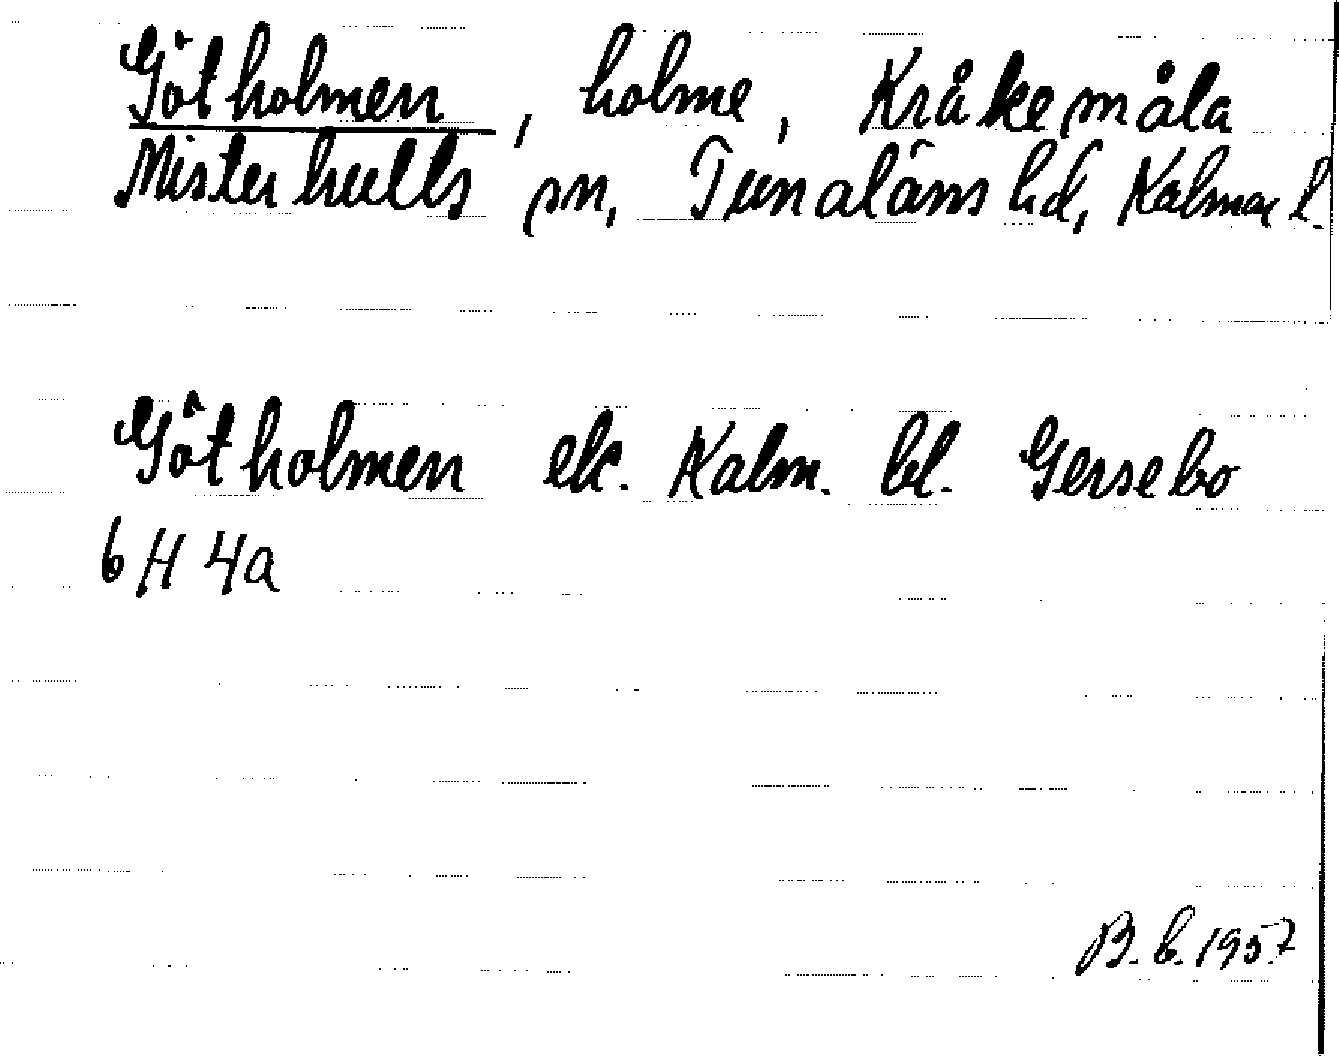 Götholmen, holme, Kråkemåla
Misterhults sn, Tunaläns hd, Kalmar l.
Götholmen ek. Kalm. bl. Gersebo
6H 4a
B. b. 1957